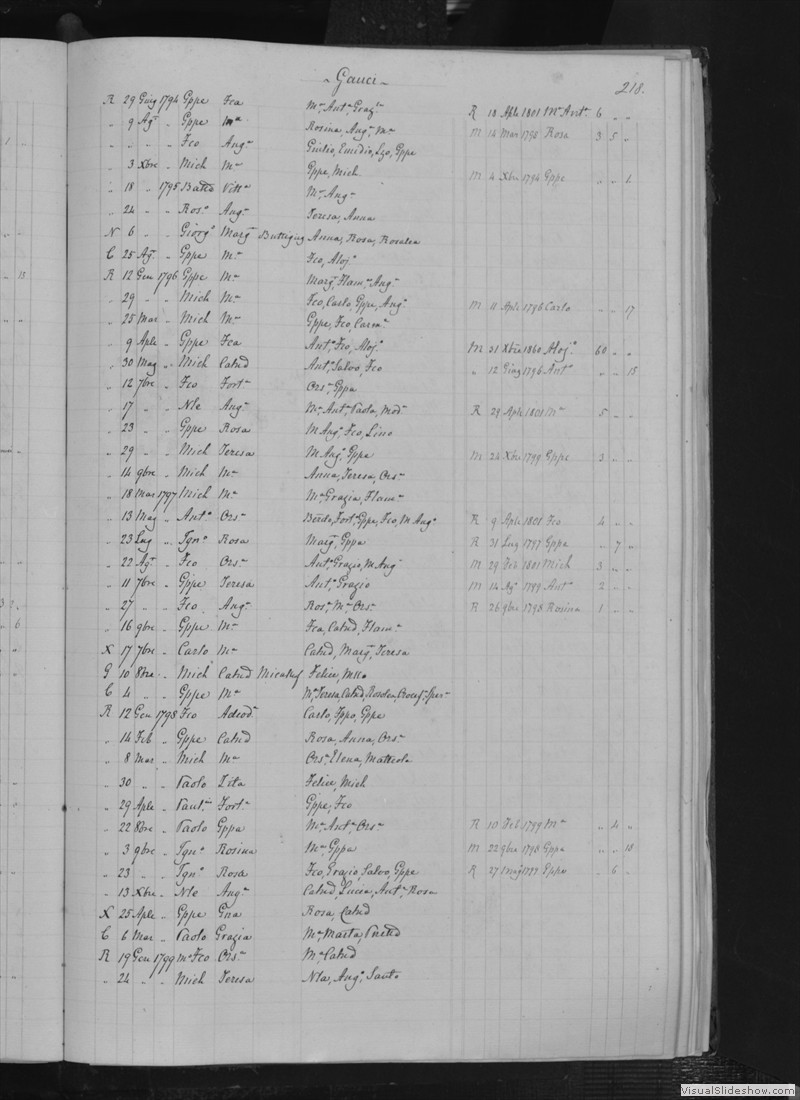 Gauci
218.
R 29 Giug 1794 Gppe Fca Mª Antª Grazª R 18 Aple 1801 Mª Antª 6 " "
" 9 Agº " Gppe Mª Rosina, Angª, Mª M 14 Mar 1798 Rosa 3 5 "
" " " " Fco Angª Giulio, Emidio, Lzo, Gppe
" 3 Xbre " Mich Mª Gppe, Mich M 4 Xbre 1794 Gppe " " 1
" 18 " 1795 Vittª Mª Angª
" 24 " " Rosº Angª Teresa, Anna
N 6 " " Giorgº Margª Buttigieg Anna, Rosa, Rosalea
C 25 Agº " Gppe Mª Fco, Alojº
R 12 Gen 1796 Gppe Mª Margª, Flamª, Angª
" 29 " " Mich Mª Fco, Carlo, Gppe, Angº M 11 Aple 1796 Carlo " " 17
" 25 Mar " Mich Mª Gppe, Fco, Carmª
" 9 Aple " Gppe Fca Antº, Fco, Alojº M 31 Xbre 1860 Alojº 60 " "
" 30 Mag " Mich Catnd Antº, Salvo, Fco " 12 Giug 1796 Antº " " 15
" 12 7bre " Fco Fortª Orsª, Gppa
" 17 " " Nle Angª Mª Antª, Paola, Modª R 29 Aple 1801 Mª 5 " "
" 23 " " Gppe Rosa M Angº, Fco, Lino
" 29 " " Mich Teresa M Angº, Gppe M 24 Xbre 1799 Gppe 3 " "
" 14 9bre " Mich Mª Anna, Teresa, Orsª
" 18 Mar 1797 Mich Mª Mª Grazia, Flamª
" 13 Mag " Antº Orsª Benda, Fortª, Gppa, Fco, M Angº R 9 Aple 1801 Fco 4 " "
" 23 Lug " Ignº Rosa Margª, Gppa R 31 Lug 1797 Gppa " 7 "
" 22 Agº " Fco Orsª Antº, Grazio, M Angº M 29 Feb 1801 Mich 3 " "
" 11 7bre " Gppe Teresa Antº, Grazio M 14 Agº 1799 Antº 2 " "
" 27 " " Fco Angª Rosª, Mª Orsª R 26 9bre 1798 Rosina 1 " "
" 16 9bre " Gppe Mª Fca, Catnd, Flamª
X 17 7bre " Carlo Mª Catnd, Margª, Teresa
G 10 8bre " Mich Catnd Micallef Felice,
C 4 " " Gppe Mª Mª Teresa, Catnd, Rosolea,
R 12 Gen 1798 Fco Adeodª Carlo, Fppo, Gppe
" 14 Feb " Gppe Catnd Rosa, Anna, Orsª
" 8 Mar " Mich Mª Orsª, Elena, Matteola
" 30 " " Paolo Zita Felice, Mich
" 29 Aple " Fortª Gppe, Fco
" 22 8bre " Paolo Gppa Mª Antª, Orsª R 10 Feb 1799 Mª " 4 "
" 3 9bre " Ignº Rosina Mª Gppa M 22 9bre 1798 Gppa " " 18
" 23 " " Ignº Rosa Fco, Grazio, Salvo, Gppe R 27 Mag 1799 Gppe " 6 "
" 13 Xbre " Nle Angª Catnd, Lucia, Antª, Rosa
X 25 Aple " Gppe Gna Rosa, Catnd
C 6 Mar " Paolo Grazia Mª, Marta,
R 19 Gen 1799 Mº Fco Orsª Mª Catnd
" 24 " " Mich Teresa Nla, Angº, Santo
VisualSlideshow.com